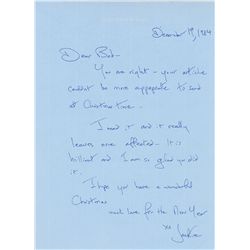 December 19, 1984
Dear Bud -
You are right - your article
couldn't be more appropriate to send
at Christmas time -
I read it and it really
leaves one affected - It is
brilliant and I am so glad you did
it.
I hope you have a wonderful
Christmas
much love for the New Year
xo Jackie